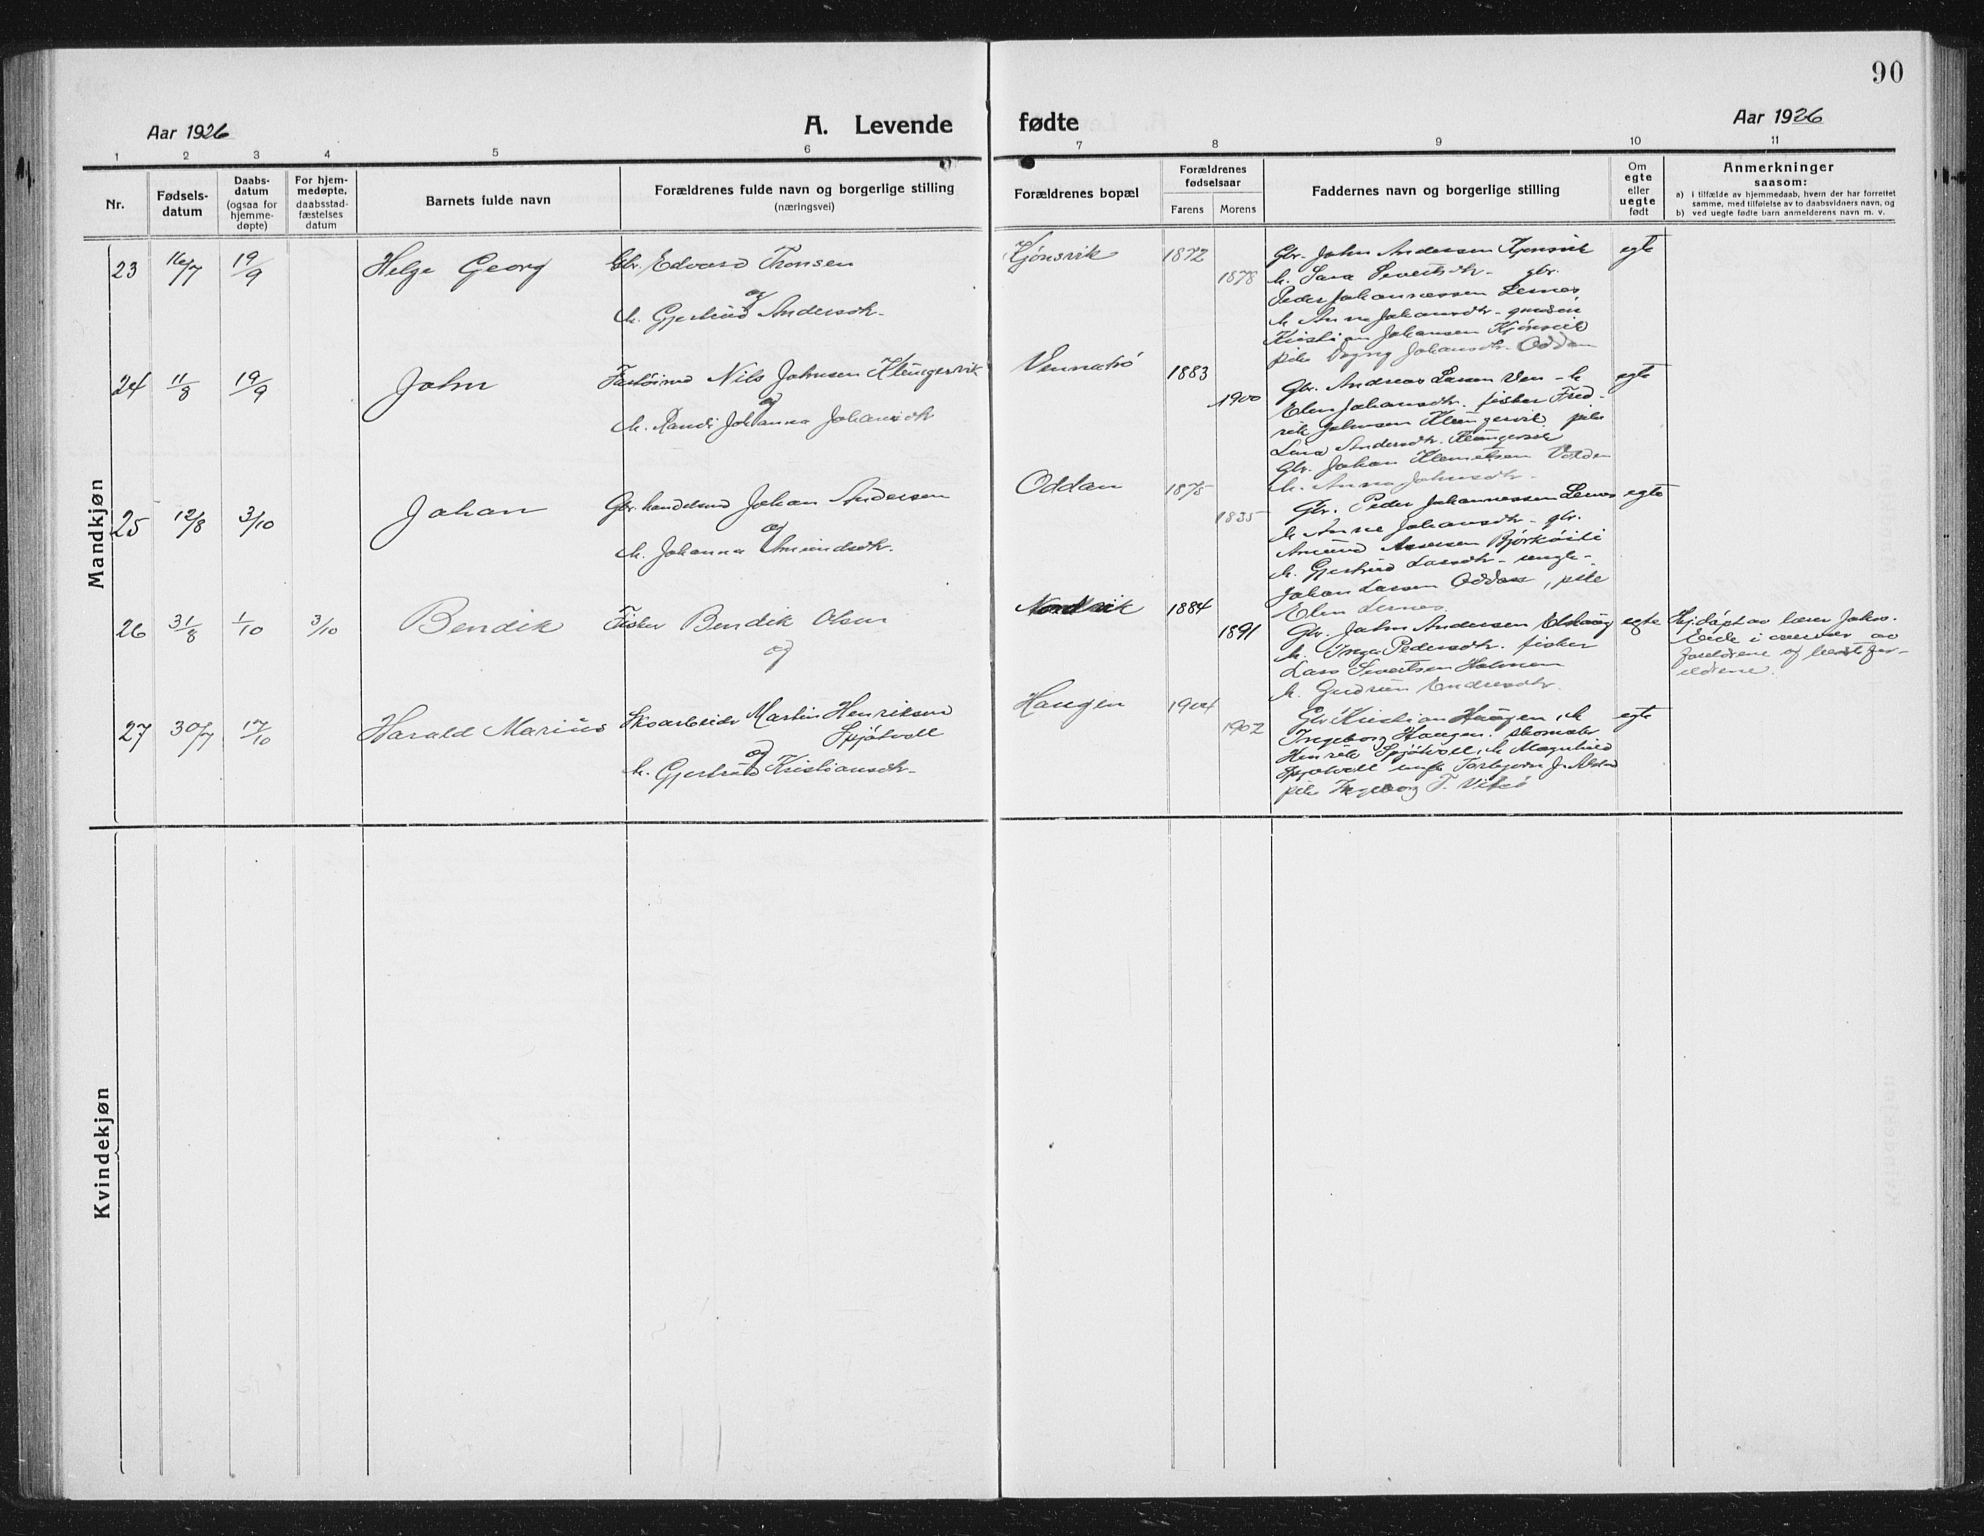 90
Aar 1926
A. Levende fødte
Aar 1926
1 2 3 4 5 6 7 8 9 10 11
Nr.
Fødsels-
datum
Daabs-
datum
(ogsaa for
hjemme-
døpte)
For hjem-
medøpte,
daabsstad-
fæstelses
datum
Barnets fulde navn
Forældrenes fulde navn og borgerlige stilling
(næringsvei)
Forældrenes bopæl
Forældrenes
fødselsaar
Farens Morens
Faddernes navn og borgerlige stilling
Om
egte
eller
uegte
født
Anmerkninger
saasom:
a) i tilfælde av hjemmedaab, hvem der har forrettet
samme, med tilføielse av to daabsvidners navn, og
b) ved uegte fødte barn anmelderens navn m. v.
Mandkjøn
23 16/7 19/9 Helge Georg
Gbr. Edvard Tronsen
og
h. Gjertrud Andersdtr.
Kjønsvik 1872
1878
Gbr. John Andersen Kjønsvik
h. Sara Severtsdtr. gbr.
Peder Johannessen Lernes
h. Anne Johansdtr.
Kristian Johansen Kjønsvik
pike Johansdtr. Oddan
egte
24 11/8 19/9 John
Nils Johnsen Klungervik
og
h. Randi Johanna Johansdtr
Vennatrø 1883
1900
Gbr. Andreas Larsen Ven - h
Elen Johansdtr. fisker Fred-
rik Johnsen Klungervik pike
Lina Andersdtr. Klungervik
Gbr. Johan Klemetsen Volden
h. Anna Johnsdtr.
egte
25 12/8 3/10 Johan
Gbr. handelsmd Johan Andersen
og
h. Johanna Amundsdtr.
Oddan 1875
1835
Gbr. Peder Johannessen Lernes
h. Anne Johansdtr. gbr.
Amund Bjørkøsli
h. Gjertrud Larsdtr. ungk.
Johan Larsen Oddan, pike
Elen Lernes
egte
26 31/8 1/10 3/10 Bendik
Fisker Bendik Olsen
og
Nordvik 1884
1891
Gbr. John Andersen
h. Inga Pedersdtr. fisker
Lars Severtsen Holmen
h. Gudrun Andersdtr.
egte
Hj.døpt av lærer Johs.
Eide i overvær av
foreldrene og besteforeldrene.
27 30/7 17/10 Harald Marius
Skoarbeider Martin Henriksen
Spjøtvoll
og
h. Gjertrud Kristiansdtr.
Haugen 1904
1902
Gbr Kristian Haugen, h
Ingeborg Haugen. skomaker
Henrik Spjøtvoll, h Magnhild
Spjøtvoll ungk Torbjørn J.
pike Ingeborg T. Vikø
egte
Kvindekjøn